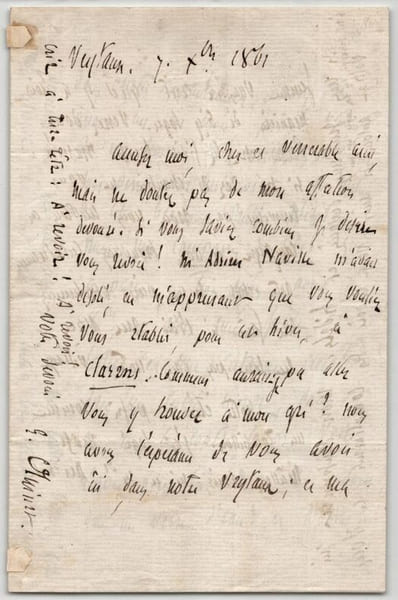 Veytaux. 7. Xbre 1861
accusez moi, cher et venerable ami,
mais ne doutez pas de mon affection
devouée. Si vous saviez combien je desire
vous revoir! Mr Adrien Naville m'a dans
en m'apprenant que vous vouliez
vous établir pour cet hiver, à
Clarens. Comment aurais-je pu aller
vous y trouver à mon gré? nous
avons l'espérance de vous avoir
ici, dans notre Veytaux; ce me
à tire tête! A revoir! A revoir!
Votre dévoué